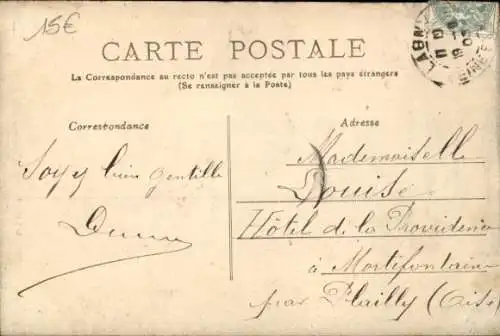 15€
CARTE POSTALE
La Correspondance au recto n'est pas acceptée par tous les pays étrangers
(Se renseigner à la Poste)
Correspondance
Adresse
Soyez bien gentille
Mademoiselle
Louise
Hôtel de la Providence
à Mortefontaine
par Plailly (Oise)